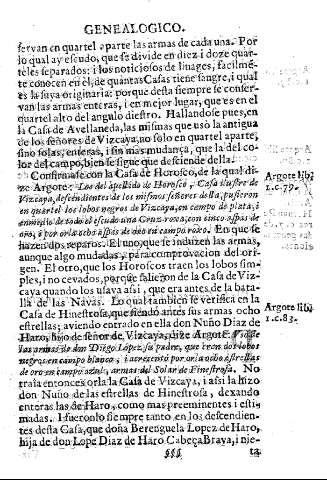 GENEALOGICO.
servan en quartel aparte las armas de cada una. Por
lo qual ay escudo, que se divide en diez i doze quar-
teles separados: i los noticiosos de linages, facilmē-
te conocen en èl, de quantas Casas tiene sangre, i qual
es la suya originaria: porque desta siempre se conser-
van las armas enteras, i en mejor lugar, que es en el
quartel alto del angulo diestro. Hallandose pues, en
la Casa de Avellaneda, las mismas que usò la antigua
de los señores de Vizcaya, no solo en quartel aparte,
sino solas, enteras, i sin mas mudança, que la del co-
lor del campo, bien se sigue que desciende della.
Confirmase con la Casa de Horosco, de la qual di-
ze Argote: Los del apellido de Horosco, Casa ilustre de
Vizcaya, descendientes de los mismos señores della, pusieron
en quartel los lobos negros de Vizcaya, en campo de plata, i
en medio de todo el escudo una Cruz roxa, con cinco aspas de
oro, i por orla ocho aspas de oro en campo roxo. En que se
hazen dos reparos. El uno, que se induzen las armas,
aunque algo mudadas, para comprovacion del ori-
gen. El otro, que los Horoscos traen los lobos sim-
ples, i no cevados, porque salieron de la Casa de Viz-
caya quando los usava assi, que era antes de la bata-
lla de las Navas. Lo qual tambien se verifica en la
Casa de Hinestrosa, que siendo antes sus armas ocho
estrellas; aviendo entrado en ella don Nuño Diaz de
Haro, hijo de señor de Vizcaya, dize Argote:
las armas de don Diego Lopez, su padre, que eran dos lobos
negros en campo blanco, i acrecentò por orla ocho estrellas
de oro en campo azul, armas del Solar de Finestrosa. No
traìa entonces orla la Casa de Vizcaya, i assi la hizo
don Nuño de las estrellas de Hinestrosa, dexando
enteras las de Haro, como mas preeminentes i esti-
madas. I fueronlo siempre tanto en los descendien-
tes desta Casa, que doña Berenguela Lopez de Haro,
hija de don Lope Diaz de Haro Cabeça Brava, i nie-
§§§ ta
Argote lib.
1.c.79.
Argote lib.
1.c.83.